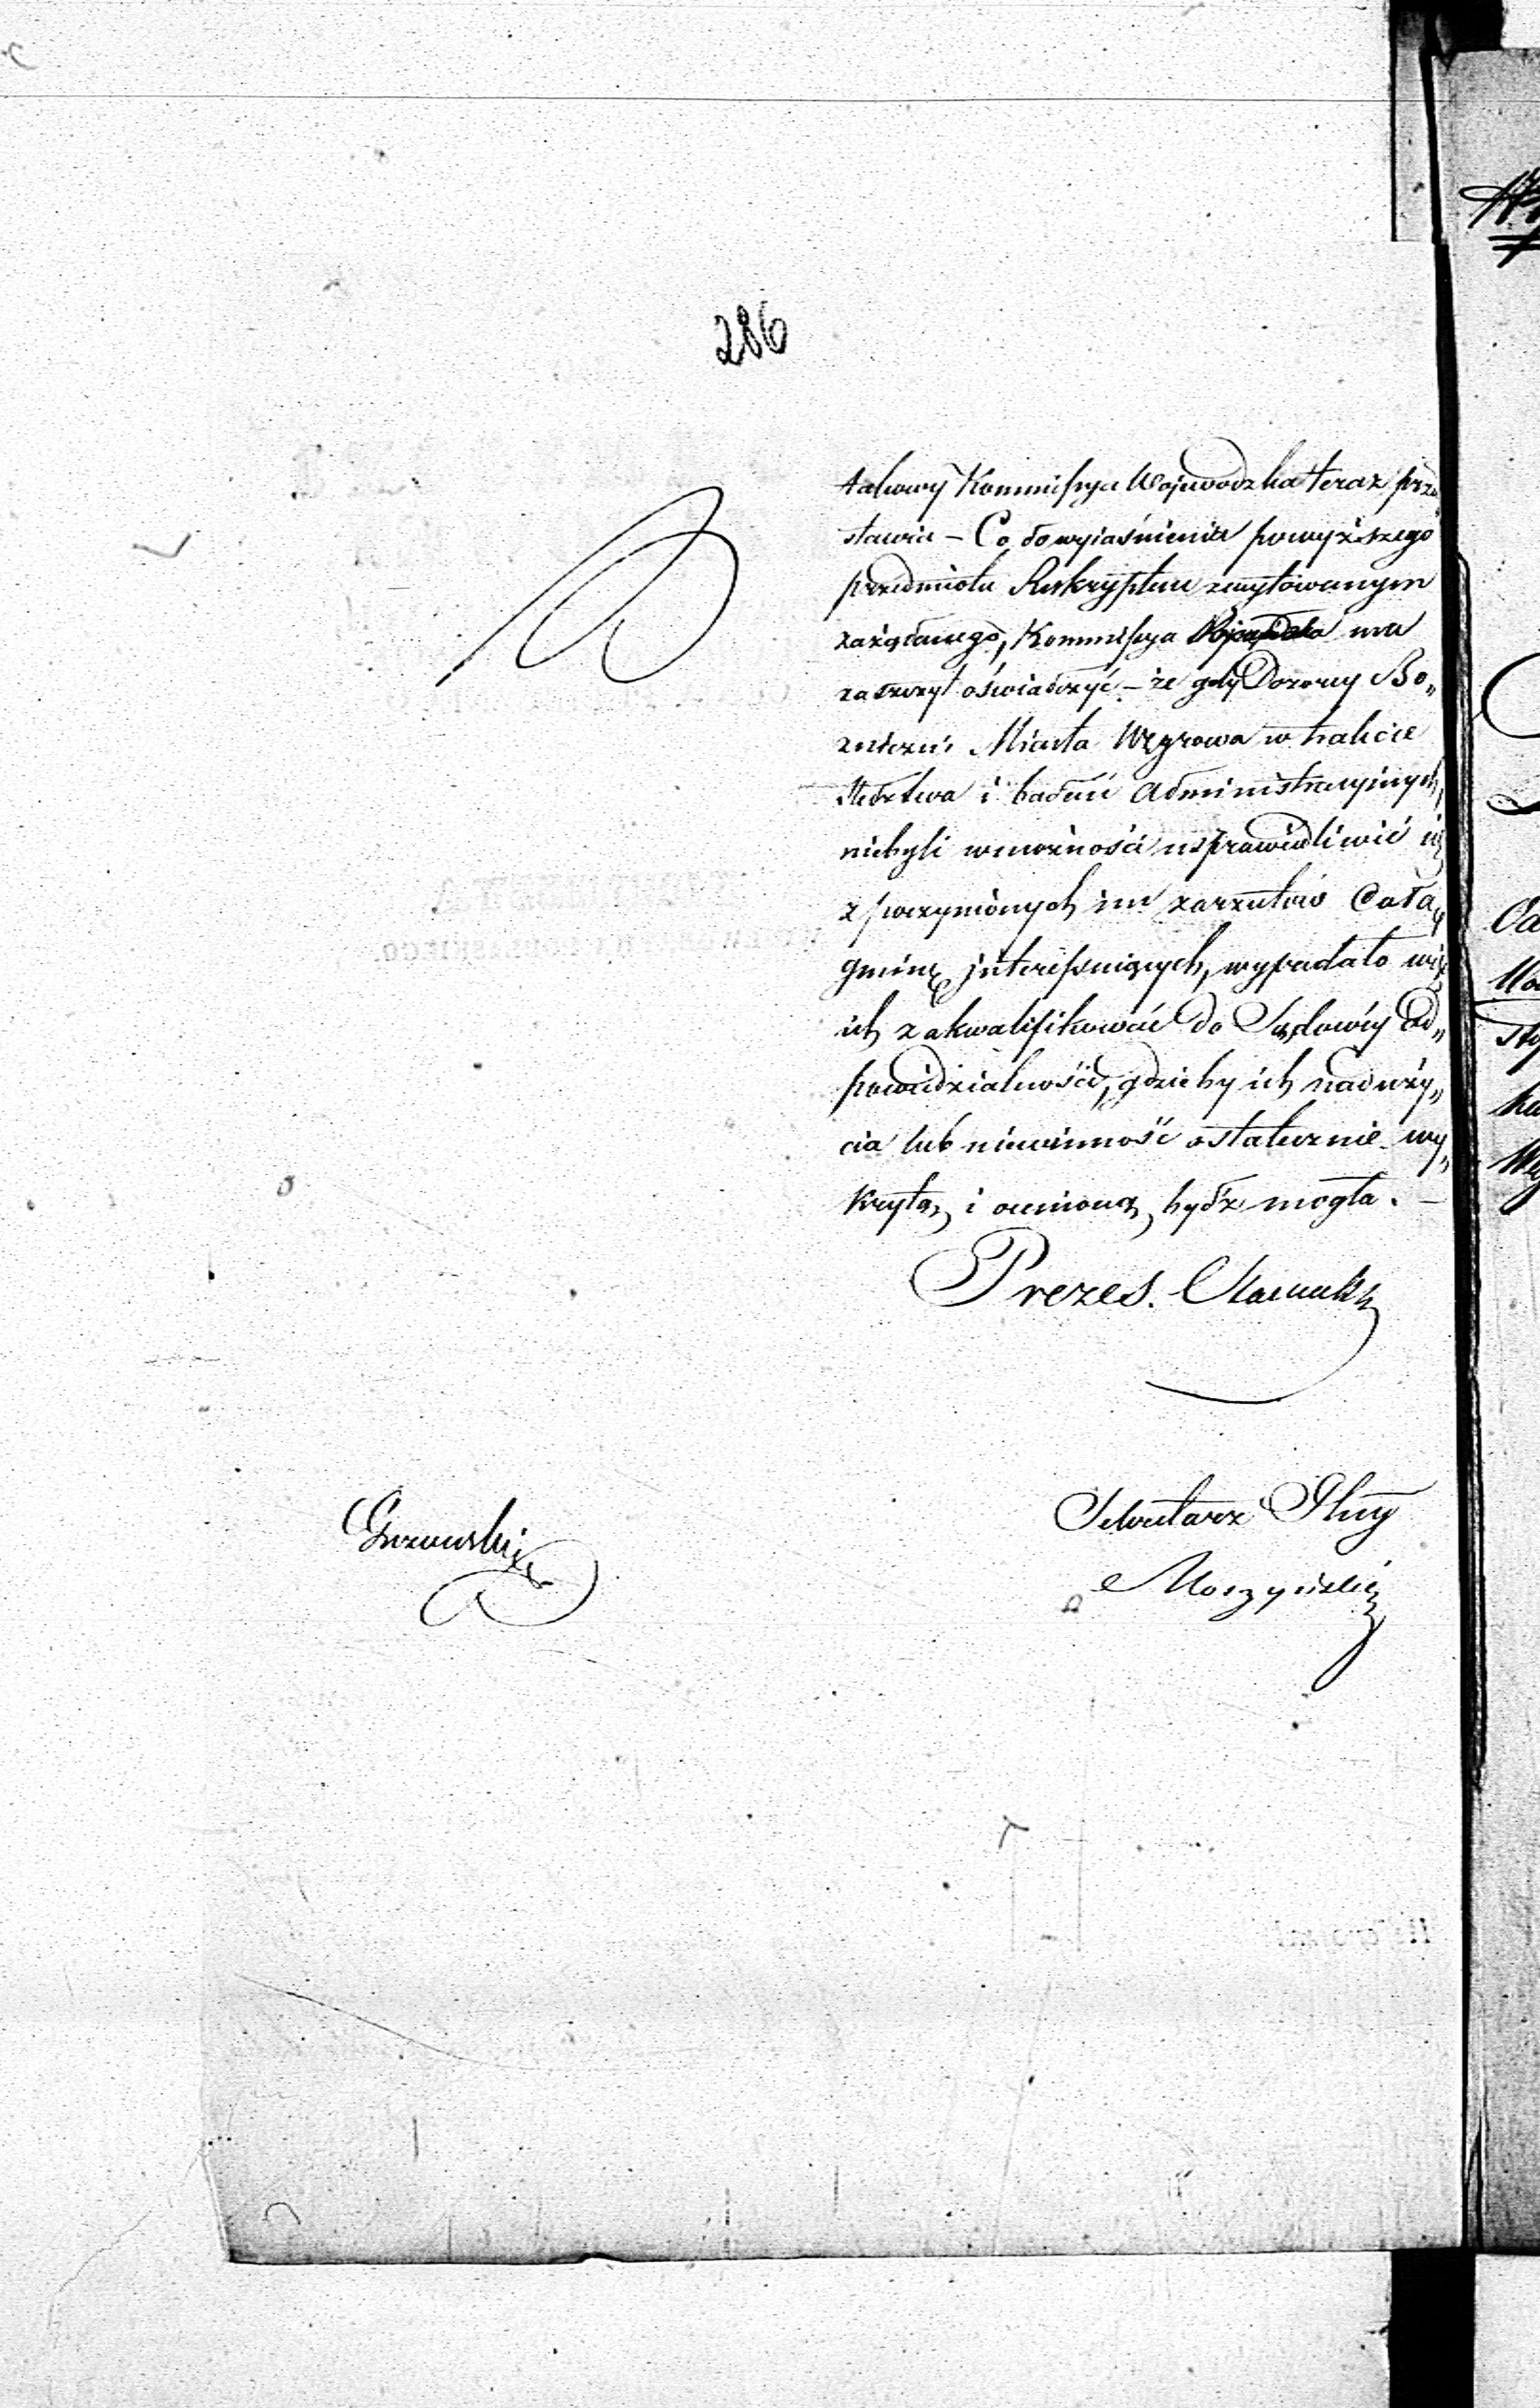 286
takowy Kommissya Wojewodzka teraz prze„
stawia – Co do wyiaśnienia powyższego
przedmiotu Reskryptem zacytowanym
zażądanego, Kommissya ma
zaszczyt oświadczyć – że gdy Dozorcy Bo„
zniczni Miasta Węgrowa w trakcie
śledztwa i badań administracyinych,
niebyli wmożności usprawiedliwić się
z poczynionych im zarzutów Całą
gminę interessuiących, wypadało więc
ich zakwalifikować do Sądowéy Od„
powiedzialności, gdzieby ich naduży„
cia lub niewinność ostatecznie wy„
krytą i ocenioną bydź mogła. –
Prezes.
Sekretarz Glny